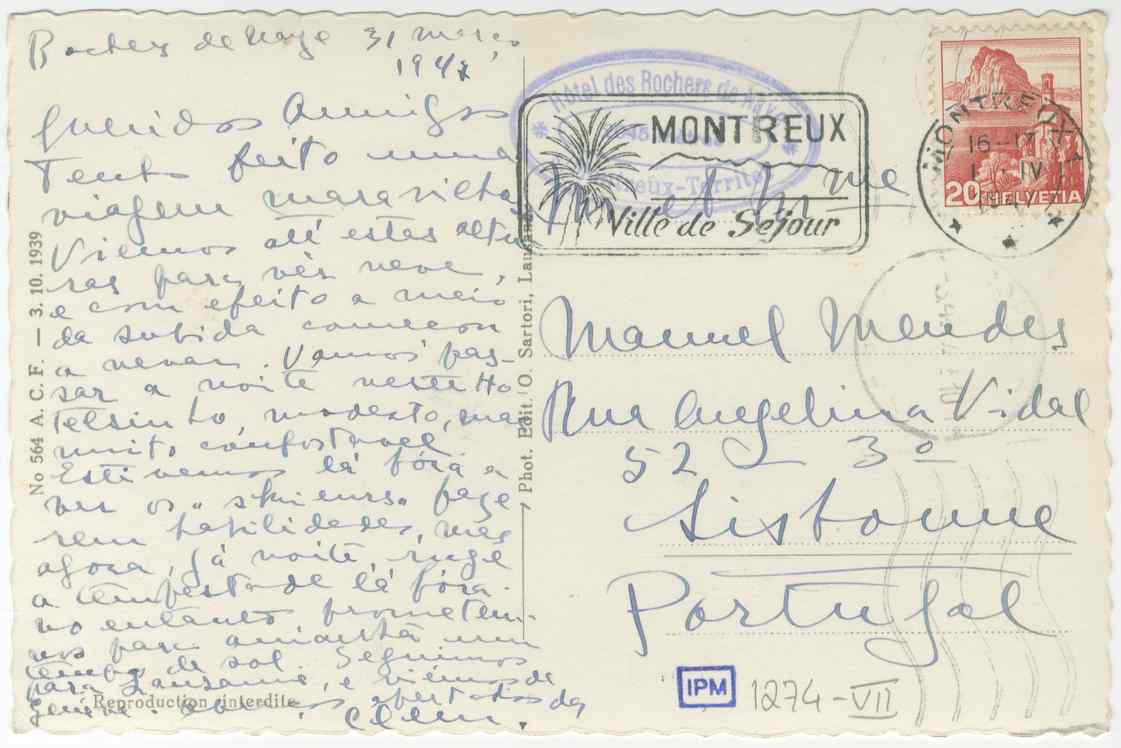 Rochers de Naye 31 março
1947
Queridos Amigos
Tenho feito uma
viagem maravilhosa
Viemos até estas altu
ras para vêr neve,
e com efeito a meio
da subida começou
a nevar. Vamos pas-
sar a noite neste Ho
telsinho, modesto, mas
muito confortavel
Estivemos lá fóra a
ver os "skieurs" faze
rem habilidades, mas
agora, já noite, ruge
a tempestade lá fóra.
no entanto prometem-
nos para amanhã um
tempo de sol. Seguimos
para Lausanne, e viemos de
Genève. apertados da
Clem.
No 564 A. C. F. — 3. 10. 1939
Reproduction interdite
Phot. Edit. O. Sartori, Lausanne
Hôtel des Rochers de Naye
Montreux-Territet
MONTREUX
Ville de Séjour
MONTREUX 1
16-17
1 IV
20 HELVETIA
Mr et Mme
Manuel Mendes
Rua Angelina Vidal
52 3º
Lisbonne
Portugal
IPM 1274-VII